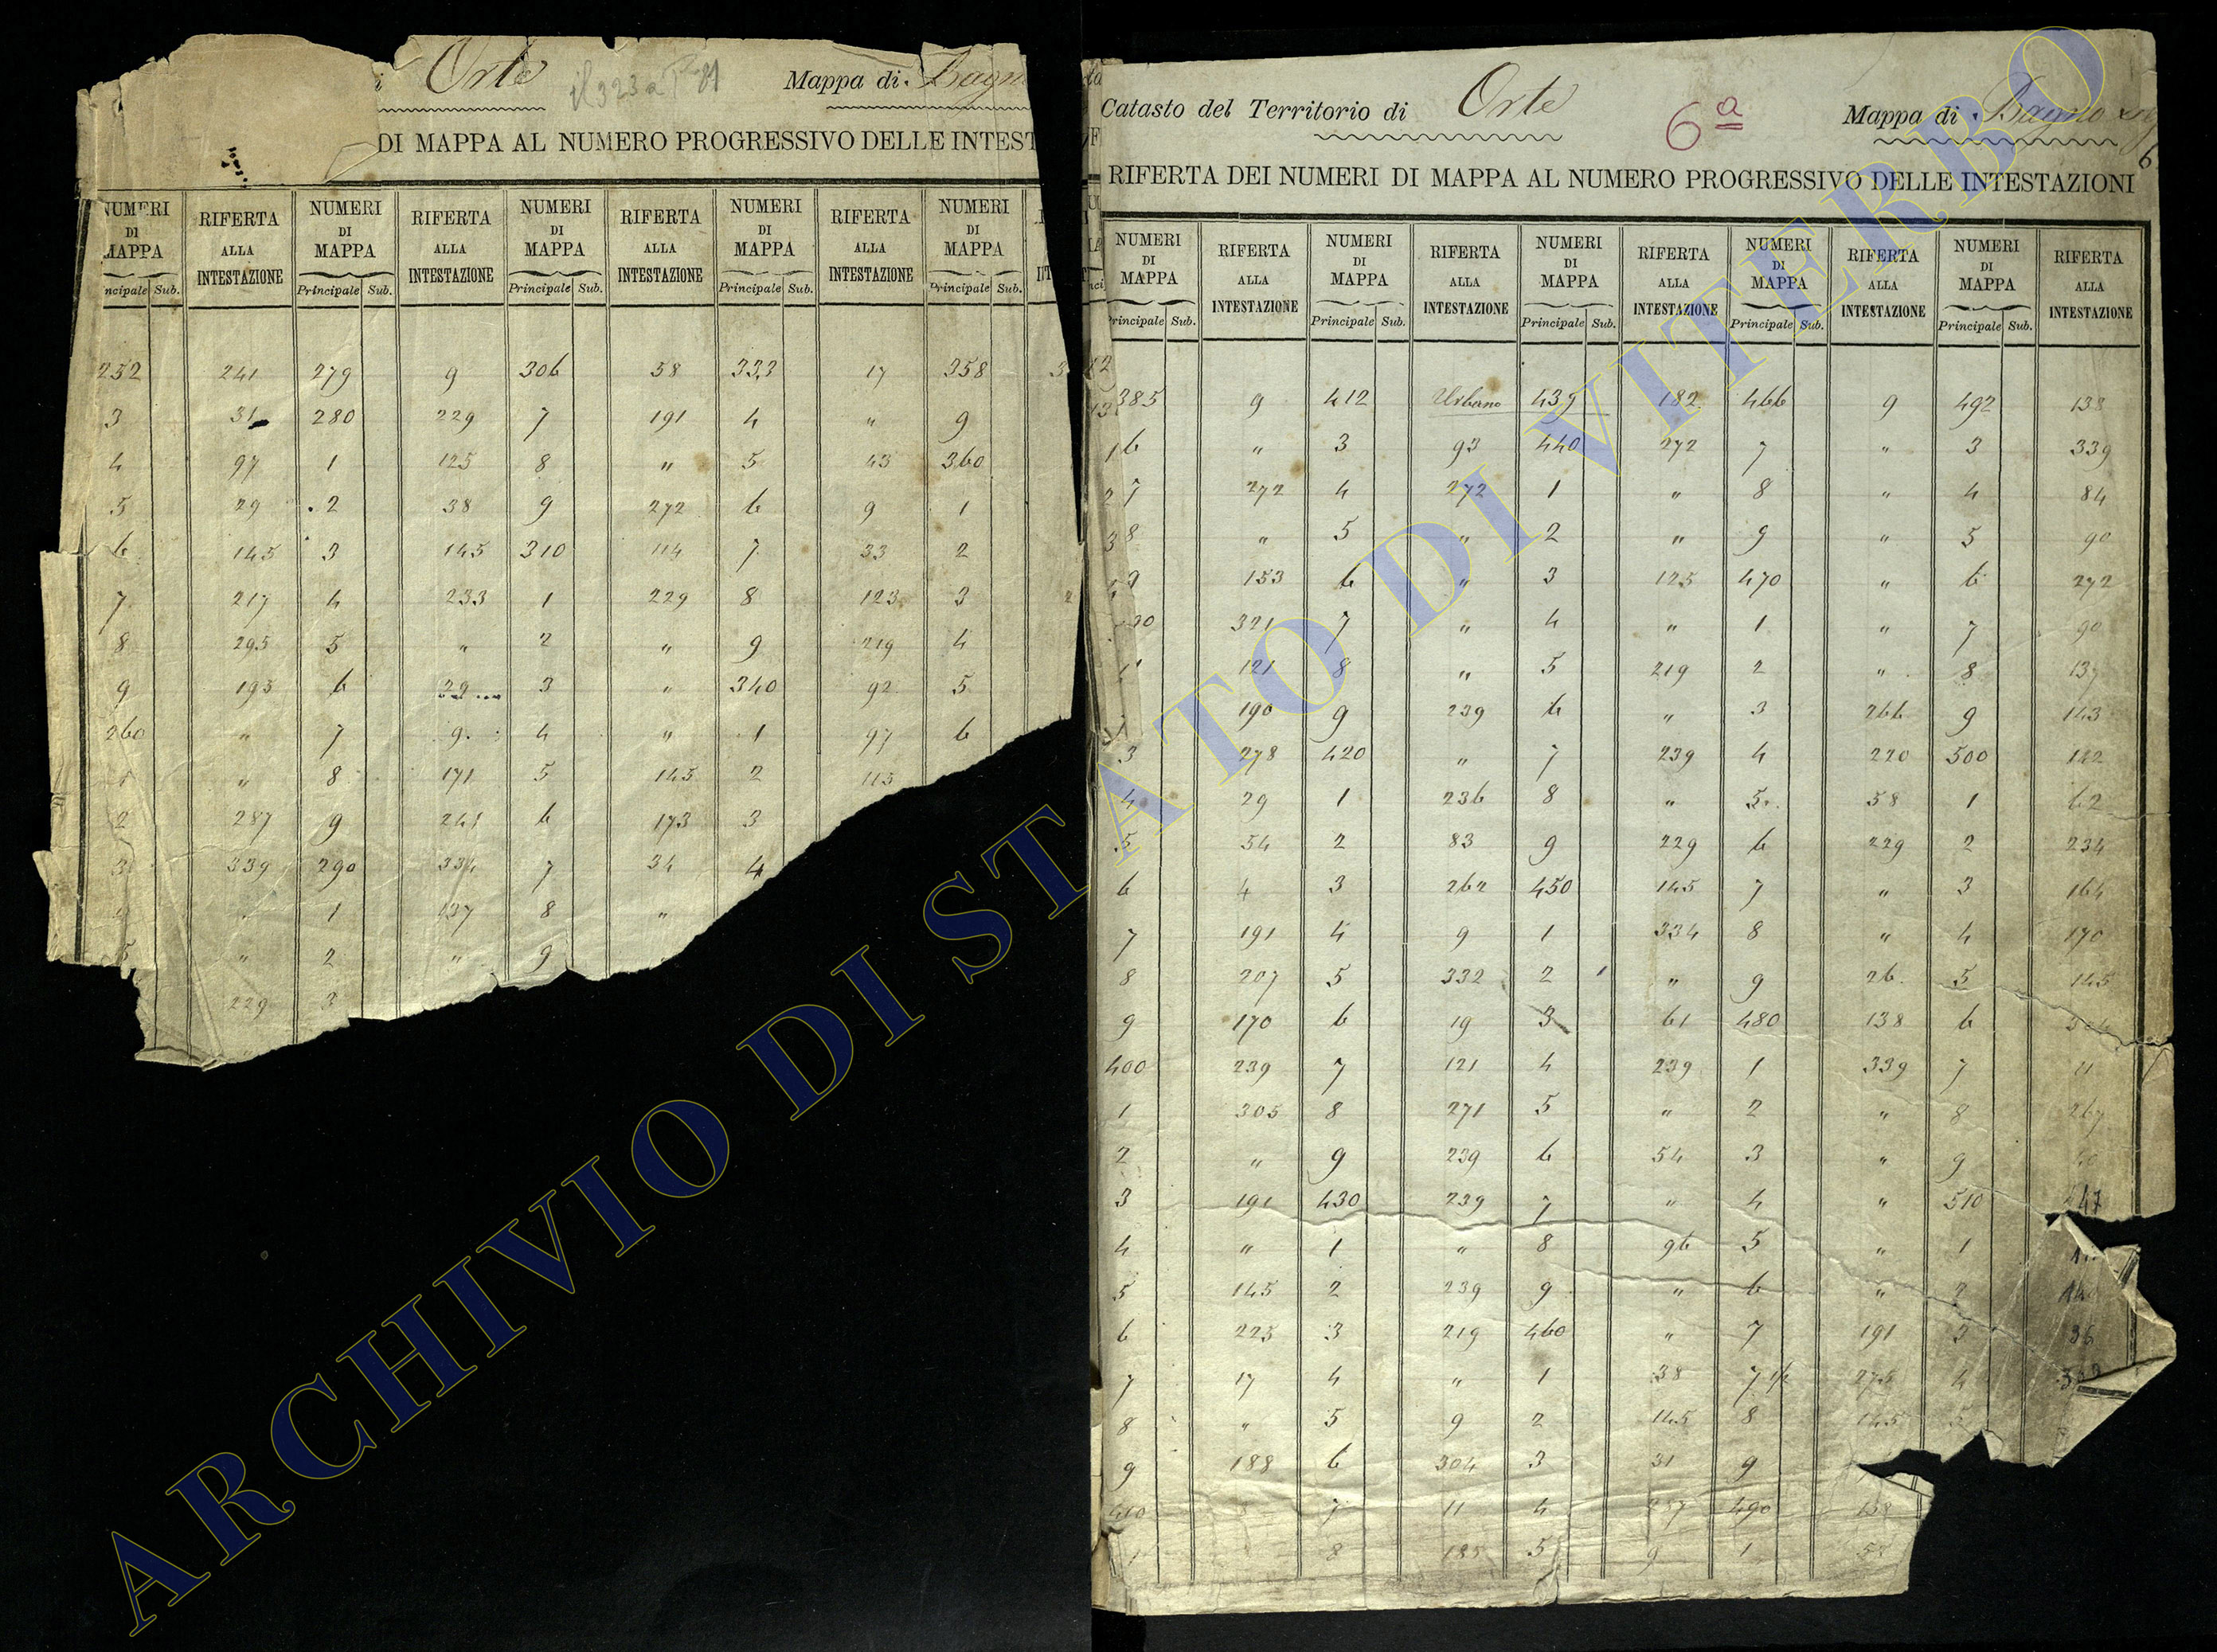 Orte
Mappa di
DI MAPPA AL NUMERO PROGRESSIVO DELLE INTEST
NUMERI DI MAPPA RIFERTA ALLA INTESTAZIONE NUMERI DI MAPPA RIFERTA ALLA INTESTAZIONE NUMERI DI MAPPA RIFERTA ALLA INTESTAZIONE NUMERI DI MAPPA RIFERTA ALLA INTESTAZIONE NUMERI DI MAPPA
Principale Sub. Principale Sub. Principale Sub. Principale Sub.
252 241 279 9 306 58 333 17 358
3 31 280 229 7 191 4 " 9
4 97 1 125 8 " 5 43 360
5 29 2 38 9 272 6 9 1
6 145 3 145 310 114 7 33 2
7 217 4 233 1 229 8 123 3
8 295 5 " 2 " 9 219 4
9 193 6 29 3 " 340 92 5
260 " 7 9 4 " 1 97 6
1 " 8 171 5 145 2 115
2 287 9 241 6 173 3
3 339 290 334 7 34 4
1 137 8 "
5 " 2 " 9
229 3
Catasto del Territorio di Orte 6ª Mappa di
6
RIFERTA DEI NUMERI DI MAPPA AL NUMERO PROGRESSIVO DELLE INTESTAZIONI
NUMERI DI MAPPA RIFERTA ALLA INTESTAZIONE NUMERI DI MAPPA RIFERTA ALLA INTESTAZIONE NUMERI DI MAPPA RIFERTA ALLA INTESTAZIONE NUMERI DI MAPPA RIFERTA ALLA INTESTAZIONE NUMERI DI MAPPA RIFERTA ALLA INTESTAZIONE
Principale Sub. Principale Sub. Principale Sub. Principale Sub. Principale Sub.
385 9 412 Urbano 439 182 466 9 492 138
6 " 3 93 440 272 7 " 3 339
7 272 4 272 1 " 8 " 4 84
8 " 5 " 2 " 9 " 5 90
9 153 6 " 3 125 470 " 6 272
321 7 " 4 " 1 " 7 90
121 8 " 5 219 2 " 8 137
190 9 239 6 " 3 266 9 143
3 278 420 " 7 239 4 220 500 142
4 29 1 236 8 " 5 58 1 62
5 54 2 83 9 229 6 229 2 234
6 4 3 262 450 145 7 " 3 164
7 191 4 9 1 334 8 " 4 170
8 207 5 332 2 " 9 26 5 145
9 170 6 19 3 61 480 138 6
400 239 7 121 4 239 1 339 7
1 305 8 271 5 " 2 " 8 267
2 " 9 239 6 54 3 " 9
3 191 430 239 7 " 4 " 510
4 " 1 " 8 96 5 " 1
5 145 2 239 9 " 6 "
6 223 3 219 460 " 7 191 3 36
7 17 4 " 1 38 7 1/2
8 " 5 9 2 145 8 145
9 188 6 304 3 31 9
410 7 11 4 490 138
1 8 185 5 9 1
ARCHIVIO DI STATO DI VITERBO